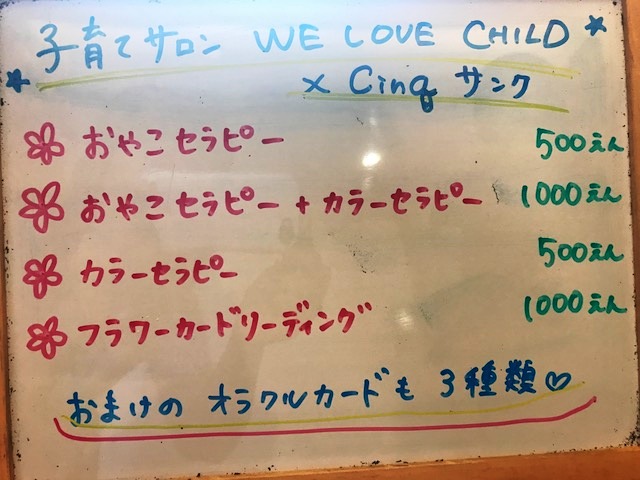 子育てサロン WE LOVE CHILD
× Cinq サンク
おやこセラピー 500えん
おやこセラピー + カラーセラピー 1000えん
カラーセラピー 500えん
フラワーカードリーディング 1000えん
おまけの オラクルカードも 3種類♡